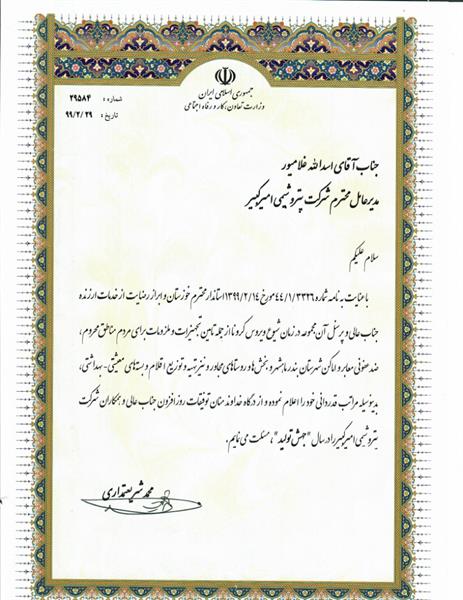 جمهوری اسلامی ایران
وزارت تعاون، کار و رفاه اجتماعی
شماره : ۲۹۵۸۴
تاریخ : ۹۹/۲/۲۹
جناب آقای اسدالله غلامپور
مدیرعامل محترم شرکت پتروشیمی امیرکبیر
سلام علیکم
با عنایت به نامه شماره ۴۴/۱/۳۳۲۶ مورخ ۱۳۹۹/۲/۱۴ استاندار محترم خوزستان و ابراز رضایت از خدمات ارزنده
جناب عالی و پرسنل آن مجموعه در زمان شیوع ویروس کرونا از جمله تامین تجهیزات و ملزومات برای مردم مناطق محروم،
ضدعفونی معابر و اماکن شهرستان بندر ماهشهر و بخش ها و روستاهای مجاور و نیز تهیه و توزیع اقلام و بسته های معیشتی-بهداشتی،
بدینوسیله مراتب قدردانی خود را اعلام نموده و از درگاه خداوند منان توفیقات روزافزون جناب عالی و همکاران شرکت
پتروشیمی امیرکبیر را در سال "جهش تولید"، مسئلت می نمایم.
محمد شریعتمداری